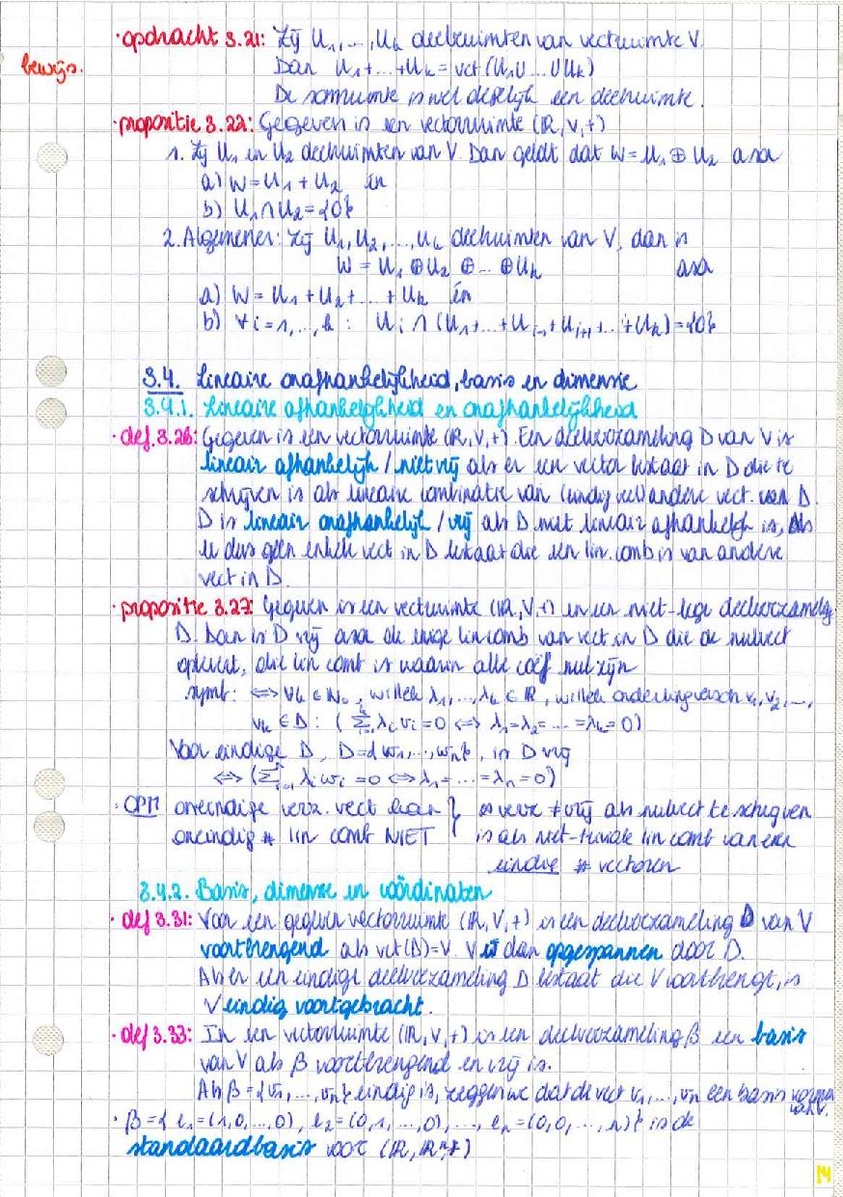 · opdracht 3.21: Zij U₁,...,Uₖ deelruimten van vectruimte V.
bewijs. Dan U₁+...+Uₖ = vct(U₁∪...∪Uₖ)
De somruimte is wel degelijk een deelruimte.
· propositie 3.22: Gegeven is een vectorruimte (ℝ,V,+)
1. Zij U₁ en U₂ deelruimten van V. Dan geldt dat W = U₁ ⊕ U₂ asa
a) W = U₁ + U₂ én
b) U₁ ∩ U₂ = {0}
2. Algemener: Zij U₁, U₂,...,Uₖ deelruimten van V, dan is
W = U₁ ⊕ U₂ ⊕ ... ⊕ Uₖ asa
a) W = U₁ + U₂ + ... + Uₖ én
b) ∀i = 1,...,k : Uᵢ ∩ (U₁+...+Uᵢ₋₁+Uᵢ₊₁+...+Uₖ) = {0}
3.4. Lineaire onafhankelijkheid, basis en dimensie
3.4.1. Lineaire afhankelijkheid en onafhankelijkheid
· def. 3.26: Gegeven is een vectorruimte (ℝ,V,+). Een deelverzameling D van V is
lineair afhankelijk / niet vrij als er een vector bestaat in D die te
schrijven is als lineaire combinatie van (eindig veel) andere vect. van D.
D is lineair onafhankelijk / vrij als D niet lineair afhankelijk is, Als
er dus geen enkele vect in D bestaat die een lin. comb is van andere
vect in D.
· propositie 3.27: Gegeven is een vectruimte (ℝ,V,+) en een niet-lege deelverzameling
D. Dan is D vrij asa de enige lin comb van vect in D die de nulvect
oplevert, die lin comb is waarin alle coëf nul zijn
symb: ⟺ ∀k ∈ ℕ₀, willek λ₁,...,λₖ ∈ ℝ, willek onderling versch v₁, v₂,...,
vₖ ∈ D : (∑λᵢvᵢ = 0 ⟺ λ₁=λ₂=...=λₖ=0)
Voor eindige D, D = {w₁,...,wₙ}, is D vrij
⟺ (∑ᵢ₌₁ⁿ λᵢwᵢ = 0 ⟺ λ₁=...=λₙ=0)
· OPM oneindige verz. vect kan } ⇒ verz ≠ vrij als nulvect te schrijven
oneindig # lin comb NIET } is als niet-triviale lin comb van een
eindig # vectoren
3.4.2. Basis, dimensie en coördinaten
· def 3.31: Voor een gegeven vectorruimte (ℝ,V,+) is een deelverzameling D van V
voortbrengend als vct(D)=V. V is dan opgespannen door D.
Als er een eindige deelverzameling D bestaat die V voortbrengt, is
V eindig voortgebracht.
· def 3.33: In een vectorruimte (ℝ,V,+) is een deelverzameling β een basis
van V als β voortbrengend en vrij is.
Als β = {v₁,...,vₙ} eindig is, zeggen we dat de vect v₁,...,vₙ een basis vormen
van V.
· β = { e₁ = (1,0,...,0), e₂ = (0,1,...,0), ..., eₙ = (0,0,...,n)} is de
standaardbasis voor (ℝ,ℝⁿ,+)
14